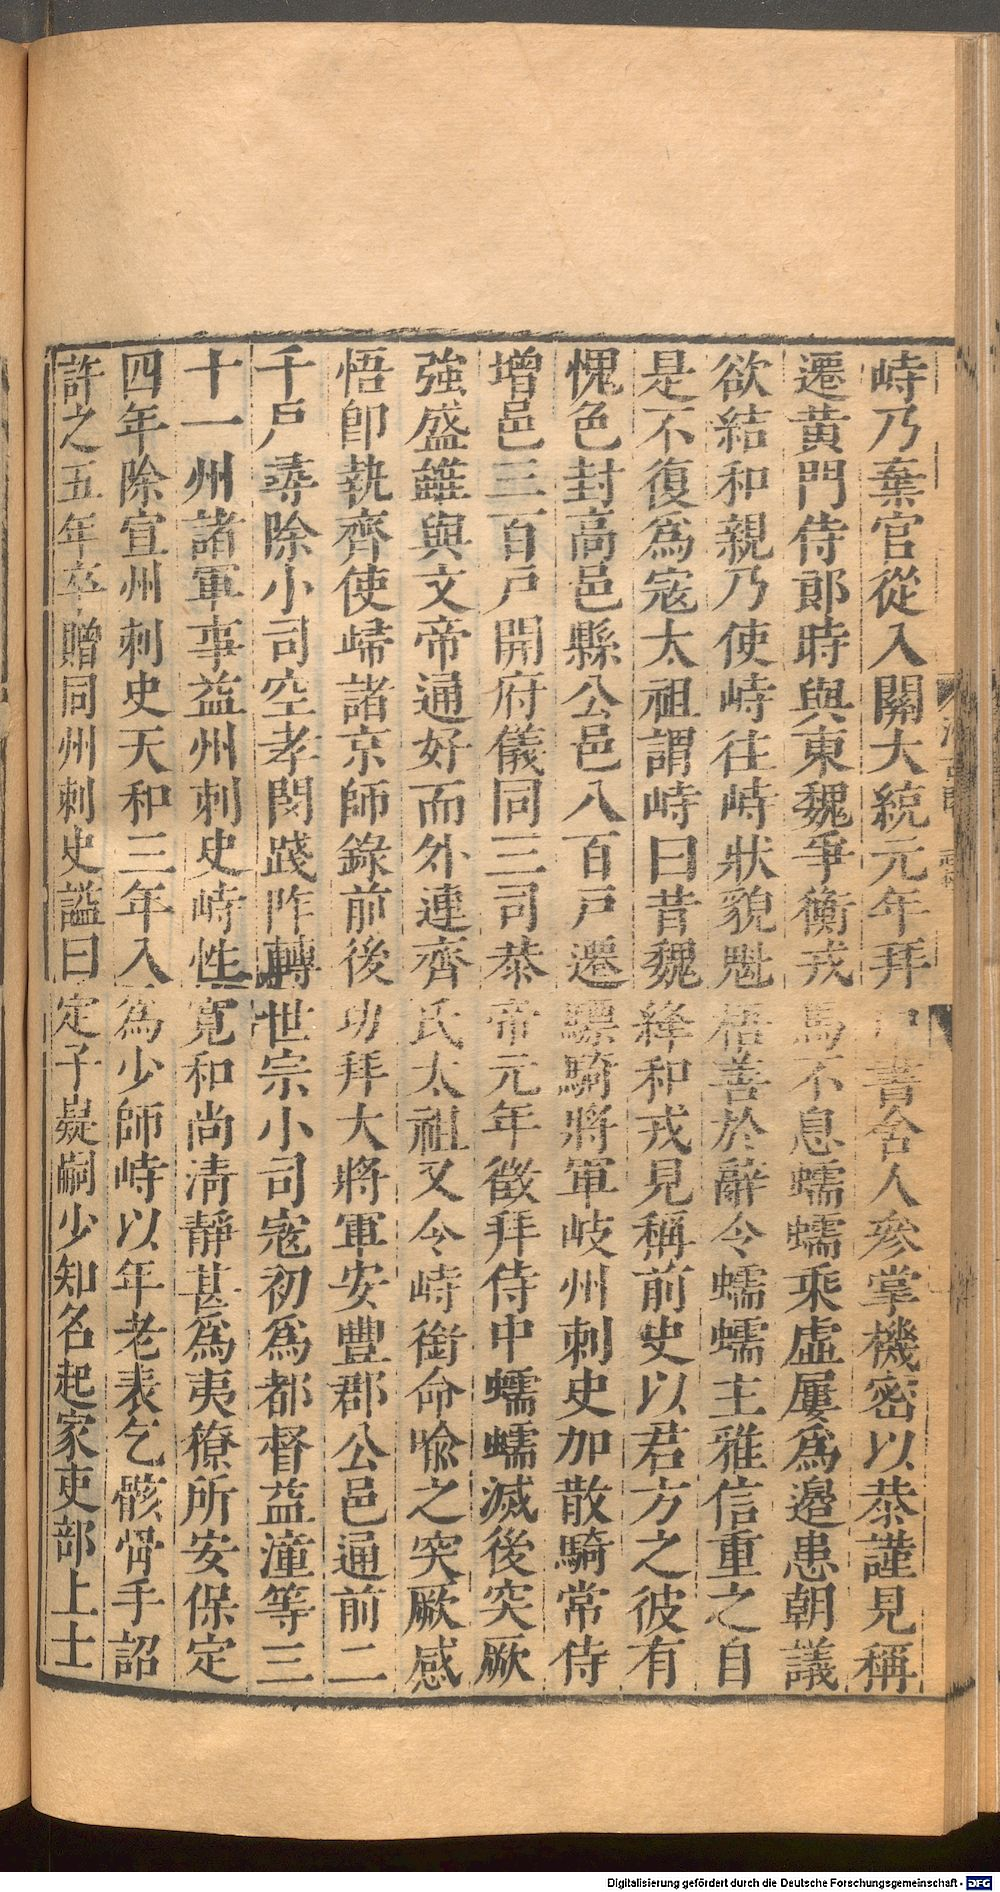 峙乃棄官從入關大統元年拜中書舍人參掌機密以恭謹見稱
遷黃門侍郎時與東魏爭衡戎馬不息蠕蠕乘虛屢爲邊患朝議
欲結和親乃使峙往峙狀貌魁梧善於辭令蠕蠕主雅信重之自
是不復爲寇太祖謂峙曰昔魏絳和戎見稱前史以君方之彼有
愧色封高邑縣公邑八百戸遷驃騎將軍岐州刺史加散騎常侍
增邑三百戸開府儀同三司恭帝元年徵拜侍中蠕蠕滅後突厥
強盛雖與文帝通好而外連齊氏太祖又令峙銜命喻之突厥感
悟卽執齊使歸諸京師錄前後功拜大將軍安豐郡公邑通前二
千戸尋除小司空孝閔踐阼轉世宗小司寇初爲都督益潼等三
十一州諸軍事益州刺史峙性寬和尚淸靜甚爲夷獠所安保定
四年除宣州刺史天和三年入爲少師峙以年老表乞骸骨手詔
許之五年卒贈同州刺史謚曰定子嶷嗣少知名起家吏部上士
Digitalisierung gefördert durch die Deutsche Forschungsgemeinschaft - DFG